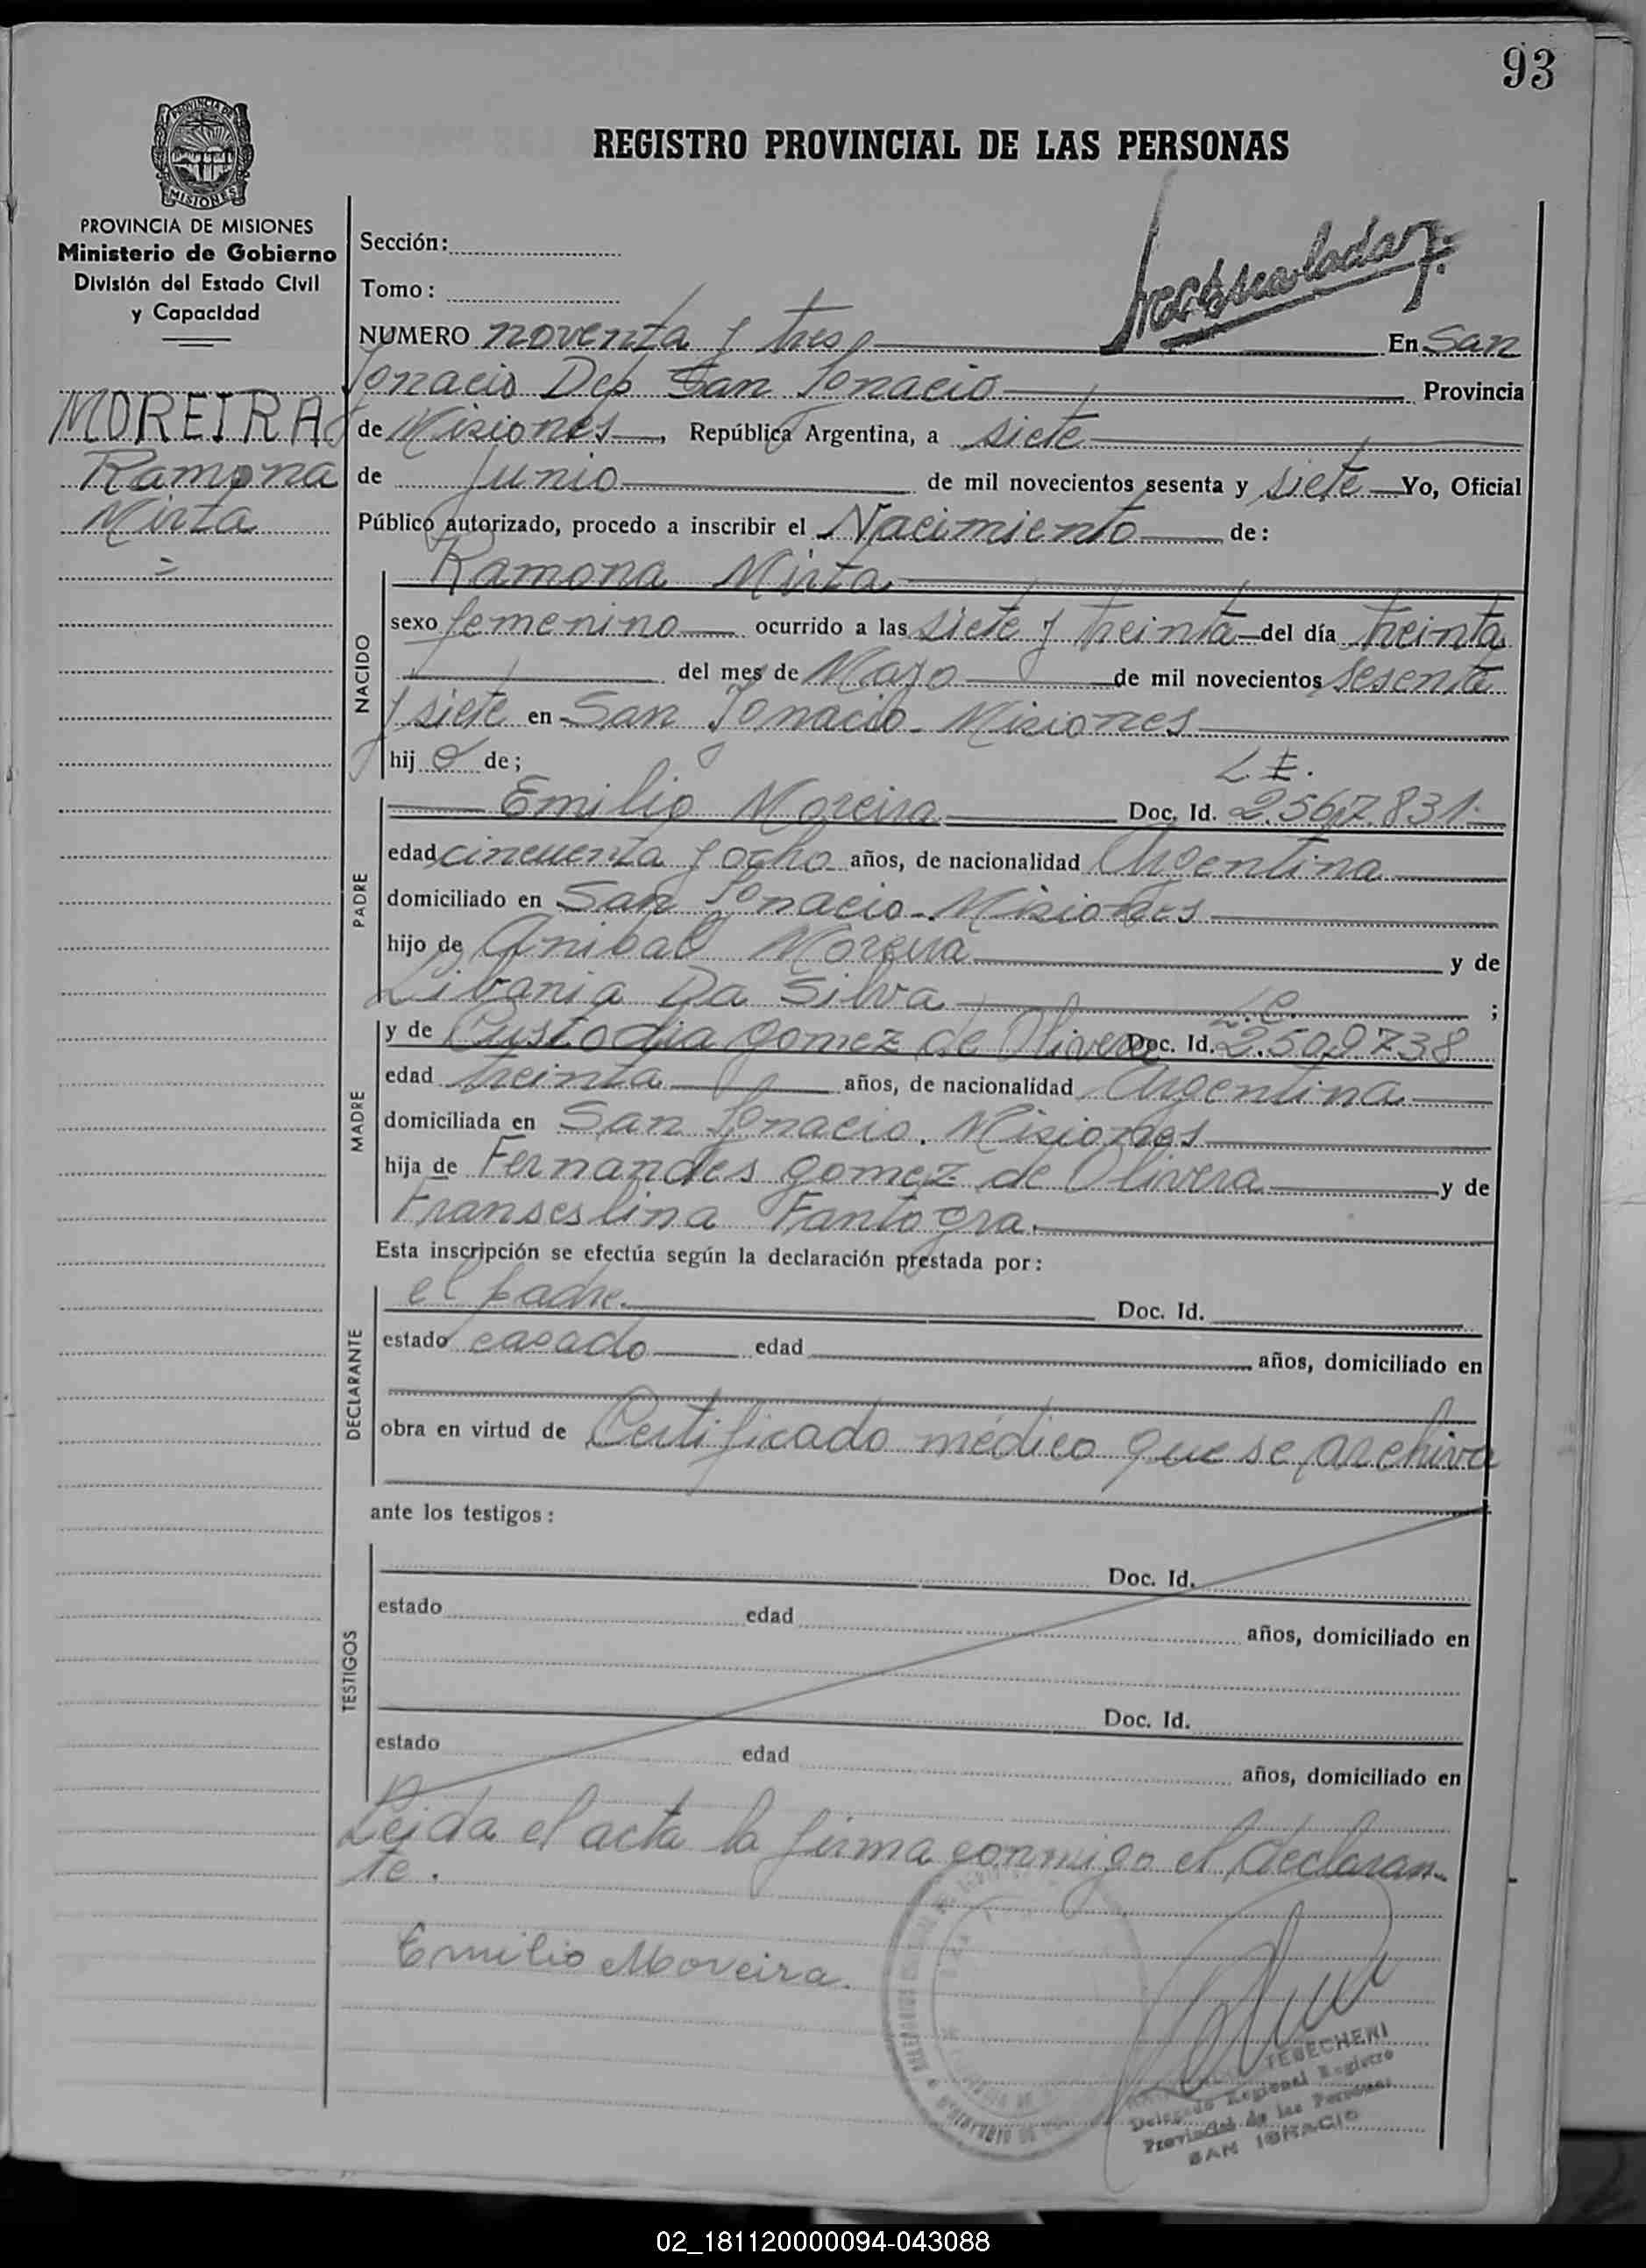 93
REGISTRO PROVINCIAL DE LAS PERSONAS
PROVINCIA DE MISIONES
Ministerio de Gobierno
División del Estado Civil
y Capacidad
MOREIRA
Ramona
Mirta
=
Sección:
Tomo:
NUMERO noventa y tres En San
Ignacio Dep San Ignacio Provincia
de Misiones, República Argentina, a siete
de Junio de mil novecientos sesenta y siete Yo, Oficial
Público autorizado, procedo a inscribir el Nacimiento de:
NACIDO
Ramona Mirta
sexo femenino ocurrido a las siete y treinta del día treinta
del mes de Mayo de mil novecientos sesenta
y siete en San Ignacio - Misiones
hij a de;
L.E.
PADRE
Emilio Moreira Doc. Id. 2.567.831
edad cincuenta y ocho años, de nacionalidad Argentina
domiciliado en San Ignacio - Misiones
hijo de Anibal Moreira y de
Libania Da Silva ;
L.C.
MADRE
y de Custodia Gomez de Olivera Doc. Id. 2.509738
edad treinta años, de nacionalidad Argentina
domiciliada en San Ignacio. Misiones
hija de Fernandes Gomez de Olivera y de
Franseslina Fantogra.
Esta inscripción se efectúa según la declaración prestada por:
DECLARANTE
el padre. Doc. Id.
estado casado edad años, domiciliado en
obra en virtud de Certificado médico que se archiva
ante los testigos:
TESTIGOS
Doc. Id.
estado edad años, domiciliado en
Doc. Id.
estado edad años, domiciliado en
Leida el acta la firma conmigo el declaran-
te.
Emilio Moreira.
TEBECHERI
Delegado Regional Registro
Provincial de las Personas
SAN IGNACIO
02_181120000094-043088